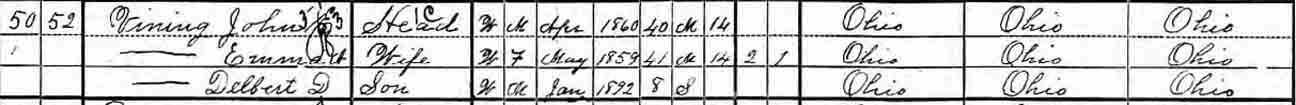 50 52 Vining John Head W M Apr 1860 40 M 14 Ohio Ohio Ohio
— Emma Wife W F May 1859 41 M 14 2 1 Ohio Ohio Ohio
— Delbert D Son W M Jan 1892 8 S Ohio Ohio Ohio